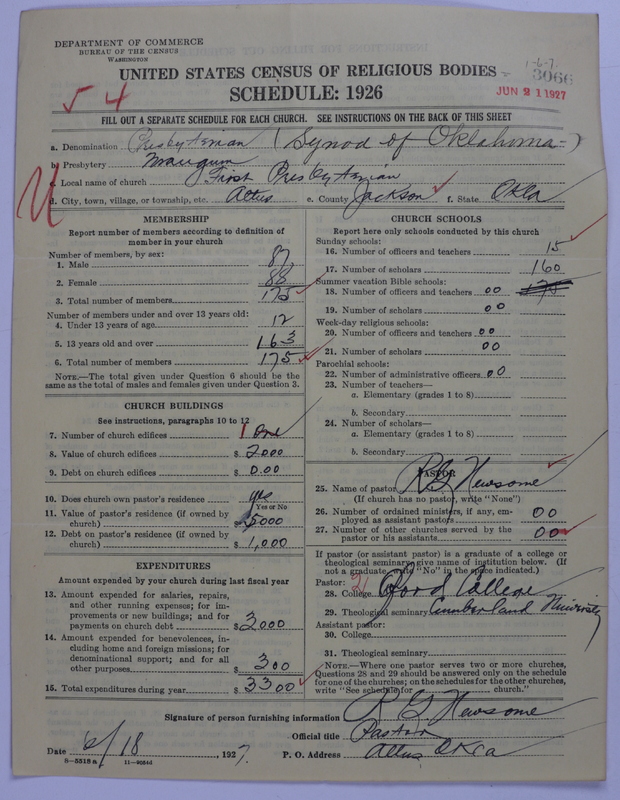 DEPARTMENT OF COMMERCE
BUREAU OF THE CENSUS
WASHINGTON
1-6-7.
3066
JUN 21 1927
UNITED STATES CENSUS OF RELIGIOUS BODIES
SCHEDULE: 1926
FILL OUT A SEPARATE SCHEDULE FOR EACH CHURCH. SEE INSTRUCTIONS ON THE BACK OF THIS SHEET
a. Denomination Presbyterian (Synod of Oklahoma)
b. Presbytery Mangum
c. Local name of church First Presbyterian
d. City, town, village, or township, etc. Altus e. County Jackson f. State Okla
MEMBERSHIP
Report number of members according to definition of
member in your church
Number of members, by sex:
1. Male 87
2. Female 88
3. Total number of members 175
Number of members under and over 13 years old:
4. Under 13 years of age 12
5. 13 years old and over 163
6. Total number of members 175
NOTE.—The total given under Question 6 should be the
same as the total of males and females given under Question 3.
CHURCH BUILDINGS
See instructions, paragraphs 10 to 12
7. Number of church edifices 1 One
8. Value of church edifices $ 2000
9. Debt on church edifices $ 0.00
10. Does church own pastor's residence yes
Yes or No
11. Value of pastor's residence (if owned by
church) $ 5000
12. Debt on pastor's residence (if owned by
church) $ 1,000
EXPENDITURES
Amount expended by your church during last fiscal year
13. Amount expended for salaries, repairs,
and other running expenses; for im-
provements or new buildings; and for
payments on church debt $ 3000
14. Amount expended for benevolences, in-
cluding home and foreign missions; for
denominational support; and for all
other purposes $ 300
15. Total expenditures during year $ 3300
CHURCH SCHOOLS
Report here only schools conducted by this church
Sunday schools:
16. Number of officers and teachers 15
17. Number of scholars 160
Summer vacation Bible schools:
18. Number of officers and teachers 00 175
19. Number of scholars 00
Week-day religious schools:
20. Number of officers and teachers 00
21. Number of scholars 00
Parochial schools:
22. Number of administrative officers 00
23. Number of teachers—
a. Elementary (grades 1 to 8)
b. Secondary
24. Number of scholars—
a. Elementary (grades 1 to 8)
b. Secondary
PASTOR
25. Name of pastor R G Newsome
(If church has no pastor, write "None")
26. Number of ordained ministers, if any, em-
ployed as assistant pastors 00
27. Number of other churches served by the
pastor or his assistants 00
If pastor (or assistant pastor) is a graduate of a college or
theological seminary give name of institution below. (If
not a graduate write "No" in the place indicated.)
Pastor:
28. College College
29. Theological seminary Cumberland University
Assistant pastor:
30. College
31. Theological seminary
NOTE.—Where one pastor serves two or more churches,
Questions 28 and 29 should be answered only on the schedule
for one of the churches; on the schedules for the other churches,
write "See schedule for church."
Signature of person furnishing information R G Newsome
Official title Pastor
Date 6/18, 1927. P. O. Address Altus Okla
8-5518 a 11-9051d